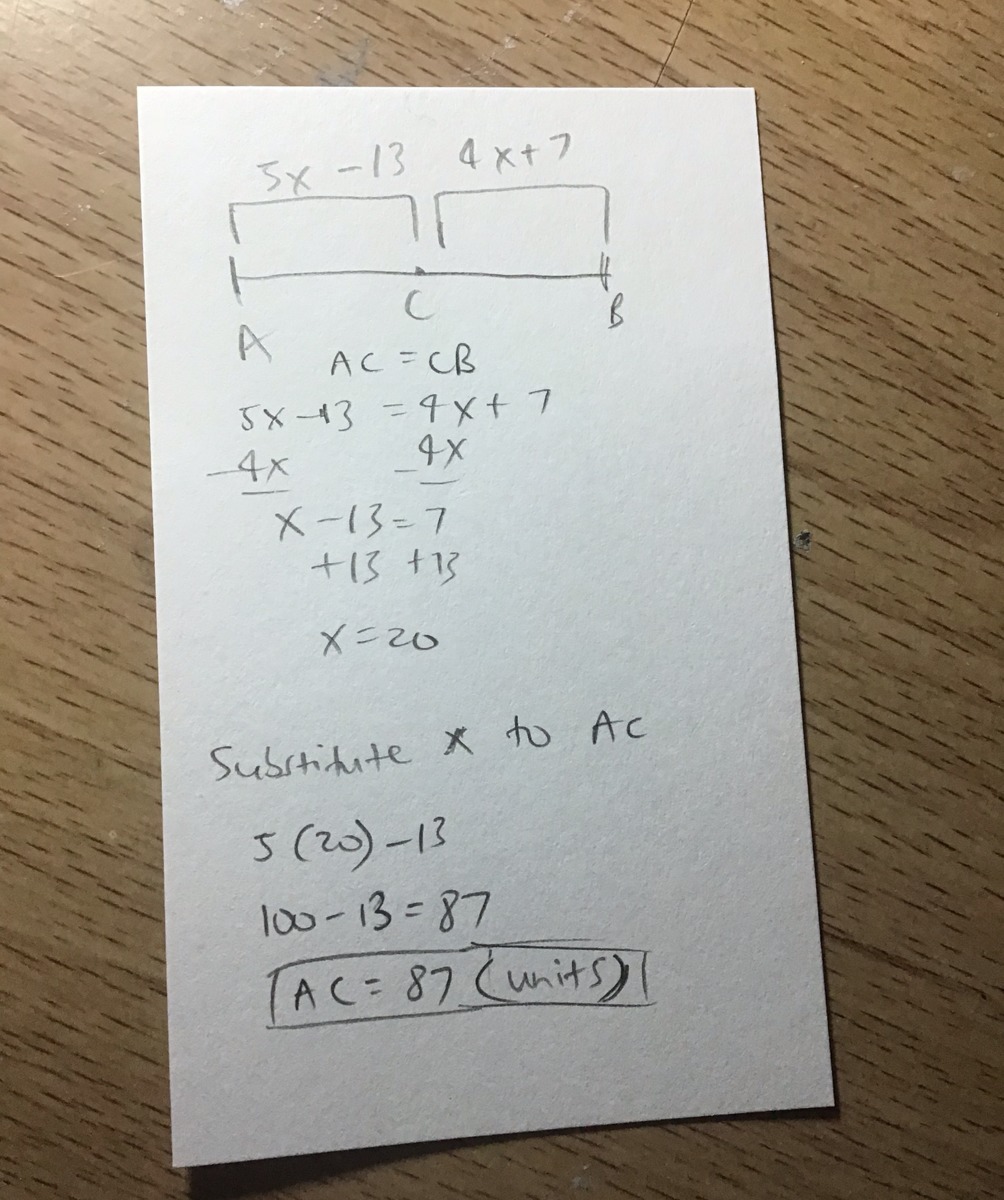 5x - 13 4x + 7
A C B
AC = CB
5x - 13 = 4x + 7
-4x -4x
x - 13 = 7
+13 +13
x = 20
Substitute x to AC
5 (20) - 13
100 - 13 = 87
AC = 87 (units)